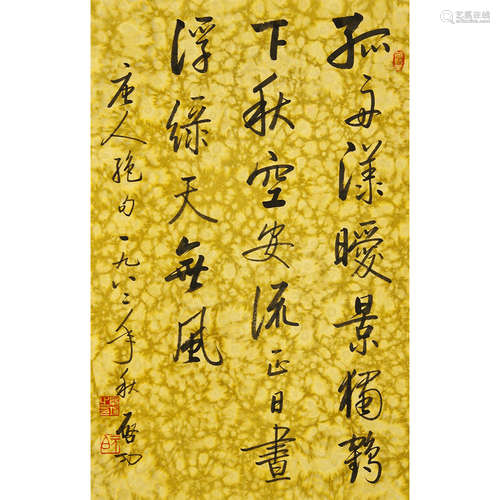 孤舟漾暧景獨鶴
下秋空安流正日晝
浮綠天無風
唐人絶句一九八二年秋
啓功